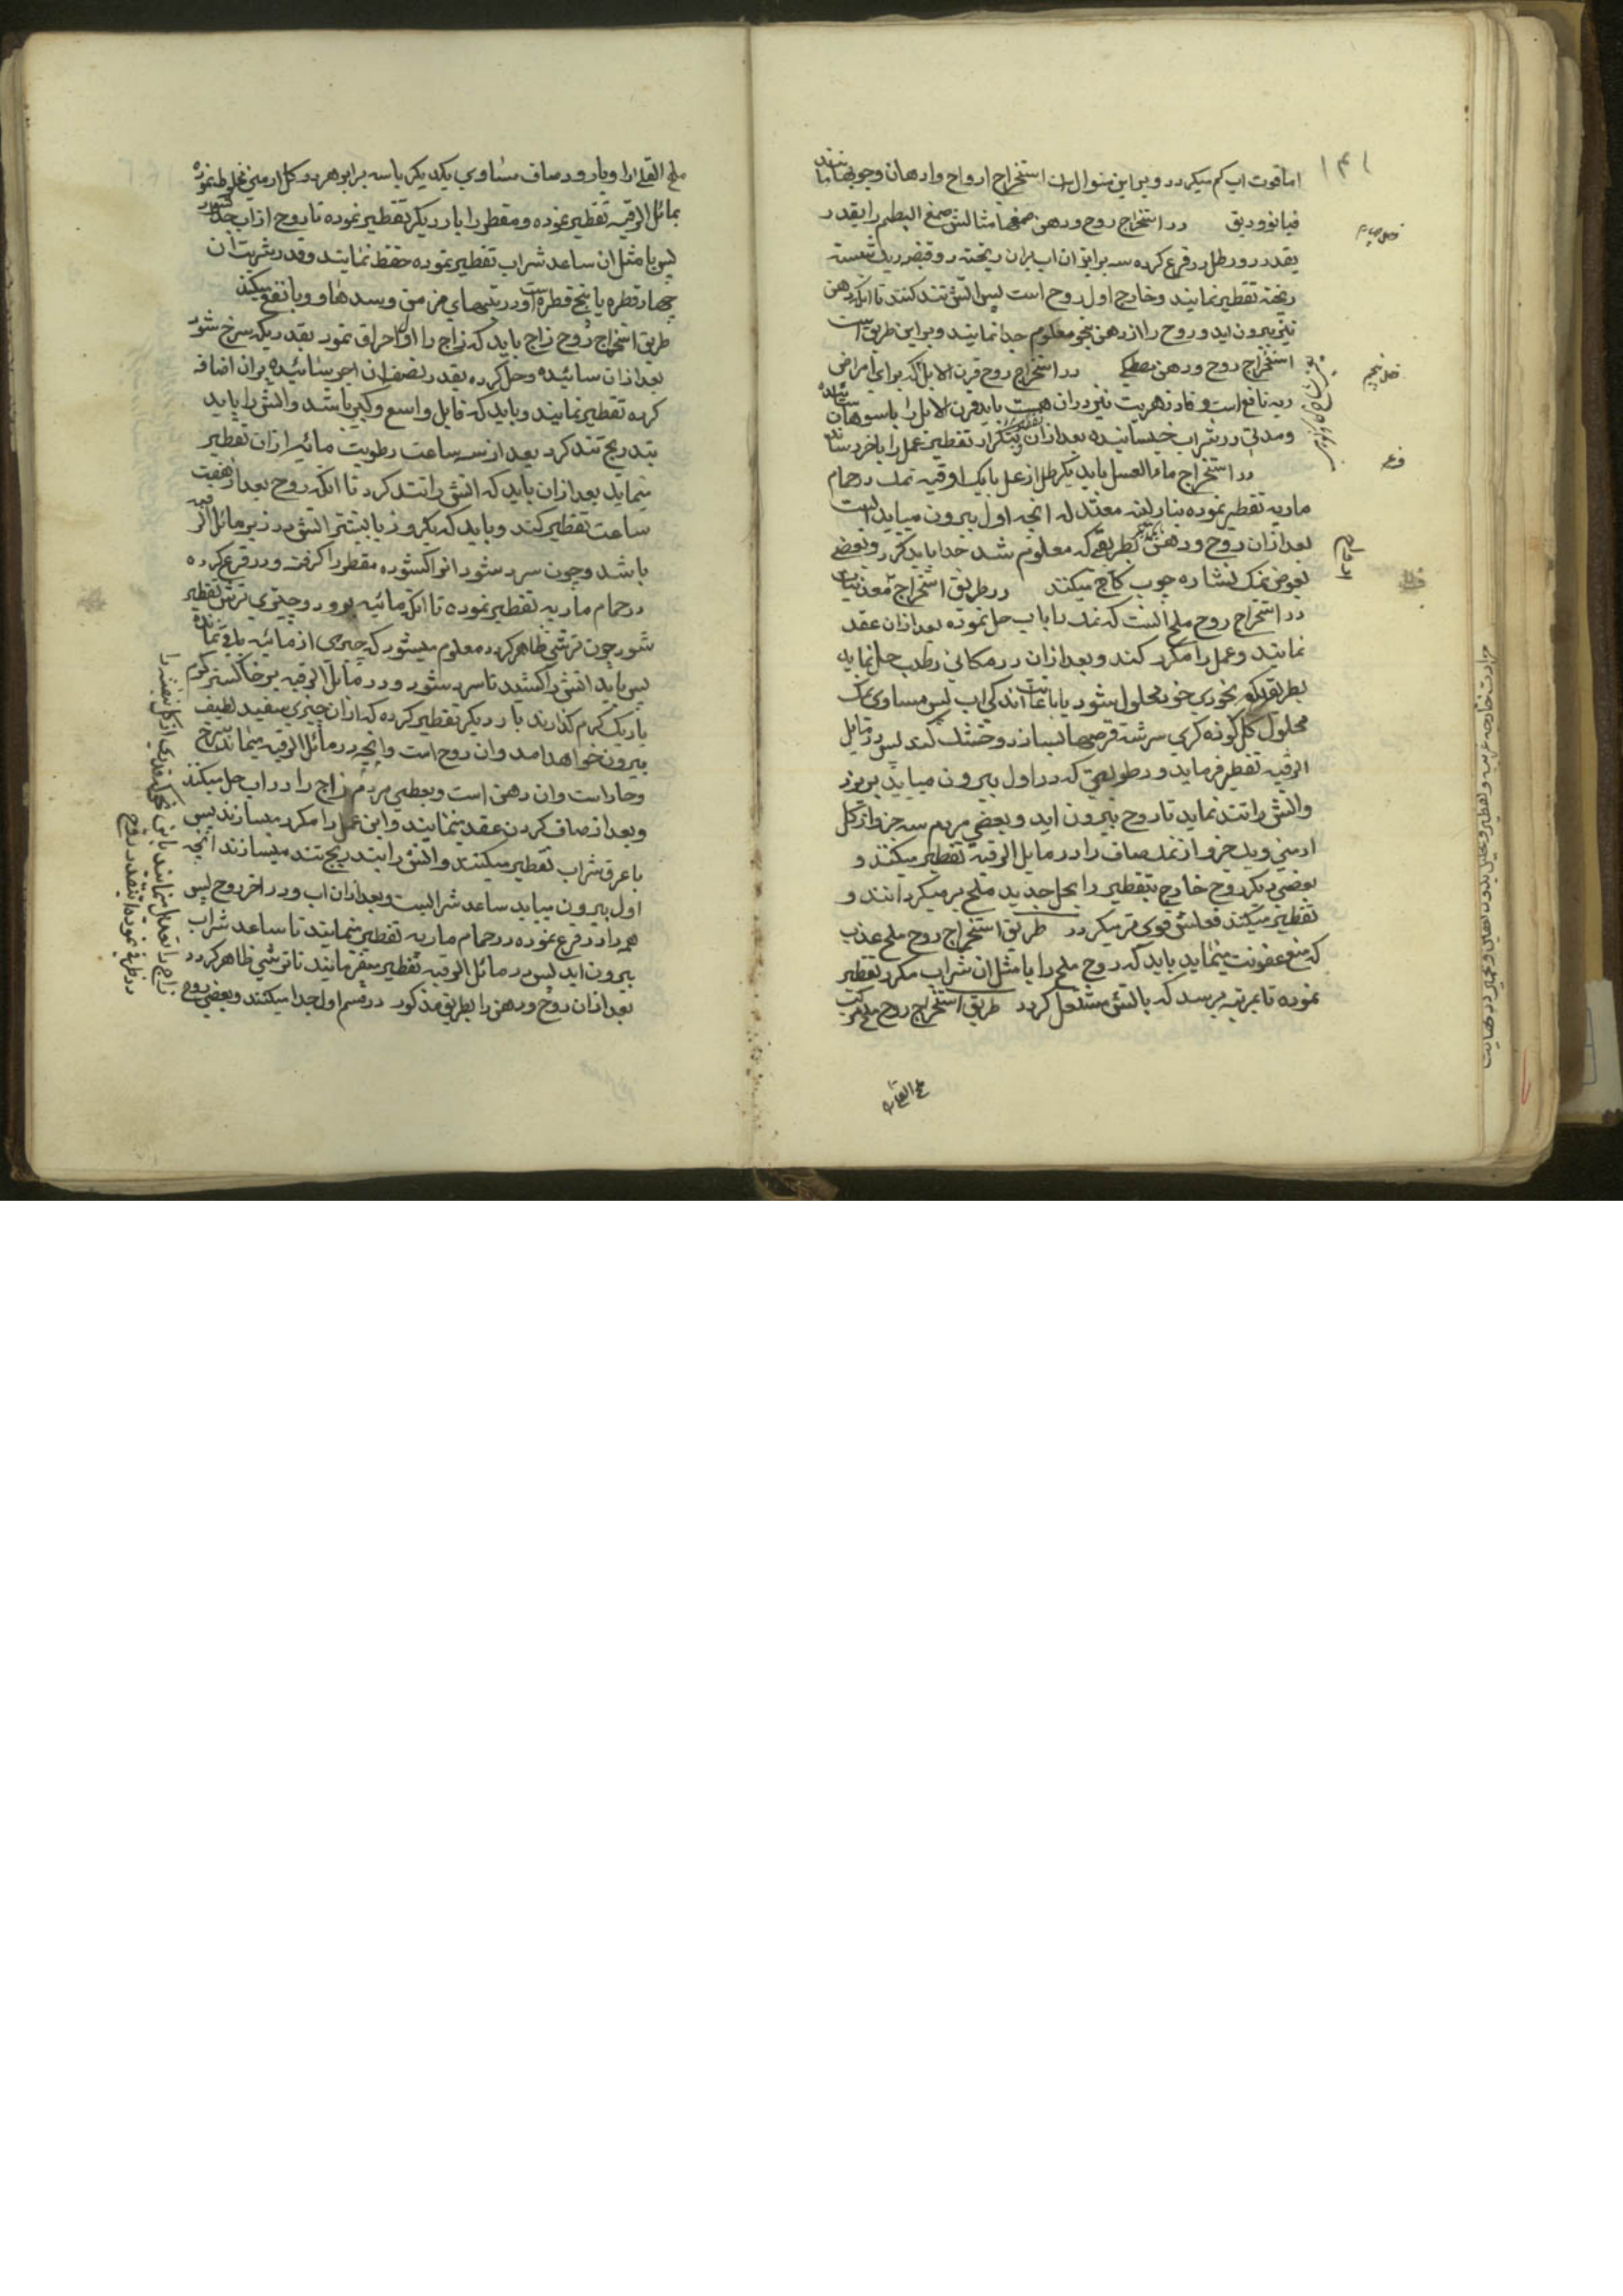 ۱۴۱
اما قوت اب کم میکردد و برین منوال است استخراج ارواح وادهان وجوبها مانند
فصل چهارم
در استخراج روح ودهن صمغها مثالش صمغ البطم را بقدر
بقدر دو رطل در قرع کرده سه برابر ان اب بران ریخته دو قبضه ریک شسته
ریخته تقطیر نمایند وخارج اول روح است پس اتش تند کنند تا انکه دهن
نیز بیرون اید و روح را از دهن بنحو معلوم جدا نمایند و براین طریق است
فصل پنجم
استخراج روح ودهن مصطکی در استخراج روح قرن الابل که برای امراض
ریه نافع است و فادزهریت نیز دران هست باید قرن الابل را باسوهان سائیده
ومدتی در شراب خیسانیده بعد ازان بتکرار تقطیر عمل را باخر رساند
فرع
در استخراج ماء العسل باید یکرطل از عسل با یک اوقیه نمک در حمام
ماریه تقطیر نموده بنار لینه معتدله انچه اول بیرون میاید ابست
بعد ازان روح ودهن بطریقی که معلوم شد جدا باید کرد و بعضی
بعوض نمک نشاره چوب کاج میکنند در طریق استخراج معدنیات
در استخراج روح ملح انست که نمک را باب حل نموده بعد ازان عقد
نمایند وعمل را مکرر کنند و بعد ازان در مکانی رطب حل نمایه
بطریقیکه بخودی خود محلول شود یا باعانت اندکی اب پس مساوی نمک
محلول کل کوزه کری سرشته قرصها بسازد وخشک کند پس در مایل
الرقبه تقطیر فرماید و رطوبتی که در اول بیرون میاید بریزد
واتش را تند نماید تا روح بیرون اید و بعضی مردم سه جزو از کل
ارمنی ویک جزو از نمک صاف را در مایل الرقبه تقطیر میکنند و
بعضی دیکر روح خارج بتقطیر را بحل جدید ملح بر میکردانند و
تقطیر میکنند فعلش قوی تر میکردد طریق استخراج روح ملح عذب
که منع عفونت مینماید باید که روح ملح را با مثل ان شراب مکرر تقطیر
نموده تا بمرتبه برسد که باتش مشتعل کردد طریق استخراج روح ملح مرکب
ملح القلی را
ملح القلی را وبارود صاف مساوی یکدیکر باسه برابر هردو کل ارمنی مخلوط نموده
بمائل الرقبه تقطیر نموده و مقطر را بار دیکر تقطیر نموده تا روح از اب جدا شود
پس با مثل ان ساعد شراب تقطیر نموده حفظ نمایند وقدر شربت ان
چهار قطره یا پنج قطره است ودر تبهای مزمن وسدها و وبا نفع میکند
طریق استخراج روح زاج باید که زاج را اولا احراق نمود بقدریکه سرخ شود
بعد ازان سائیده وحل کرده بقدر نصف ان اجر سائیده بران اضافه
کرده تقطیر نمایند وباید که قابل واسع وکبیر باشد واتش را باید
بتدریج تند کرد بعد از سه ساعت رطوبت مائیه از ان تقطیر
مینماید بعد ازان باید که اتش را تند کرد تا انکه روح بعد از هفت
ساعت تقطیر کند وباید که یکروز یا بیشتر اتش در زیر مائل الرقبه
باشد وچون سرد شود انوا کشوده مقطر را کرفته ودر قرع کرده
در حمام ماریه تقطیر نموده تا انکه مائیه برود وچیزی ترش تقطیر
شود چون ترشی ظاهر کردد معلوم میشود که چیزی از مائیه باقی نمانده
پس باید اتش را کشید تا سرد شود ودر مائل الرقبه بر خاکستر کرم
یا ریک کرم کذارند بار دیکر تقطیر کرده که ازان چیزی سفید لطیف
بیرون خواهد امد وان روح است وانچه در مائل الرقبه میماند سرخ
وحار است وان دهن است وبعضی مردم زاج را در اب حل میکنند
وبعد از صاف کردن عقد مینمایند واین عمل را مکرر میسازند پس
با عرق شراب تقطیر میکنند واتش را بتدریج تند میسازند انچه
اول بیرون میاید ساعد شرابست وبعد ازان اب ودر اخر روح پس
همه را در قرع نموده در حمام ماریه تقطیر مینمایند تا ساعد شراب
بیرون اید پس در مائل الرقبه تقطیر میفرمایند تا ترشی ظاهر کردد
بعد ازان روح ودهن را بطریق مذکور در قسم اول جدا میکنند وبعضی روح